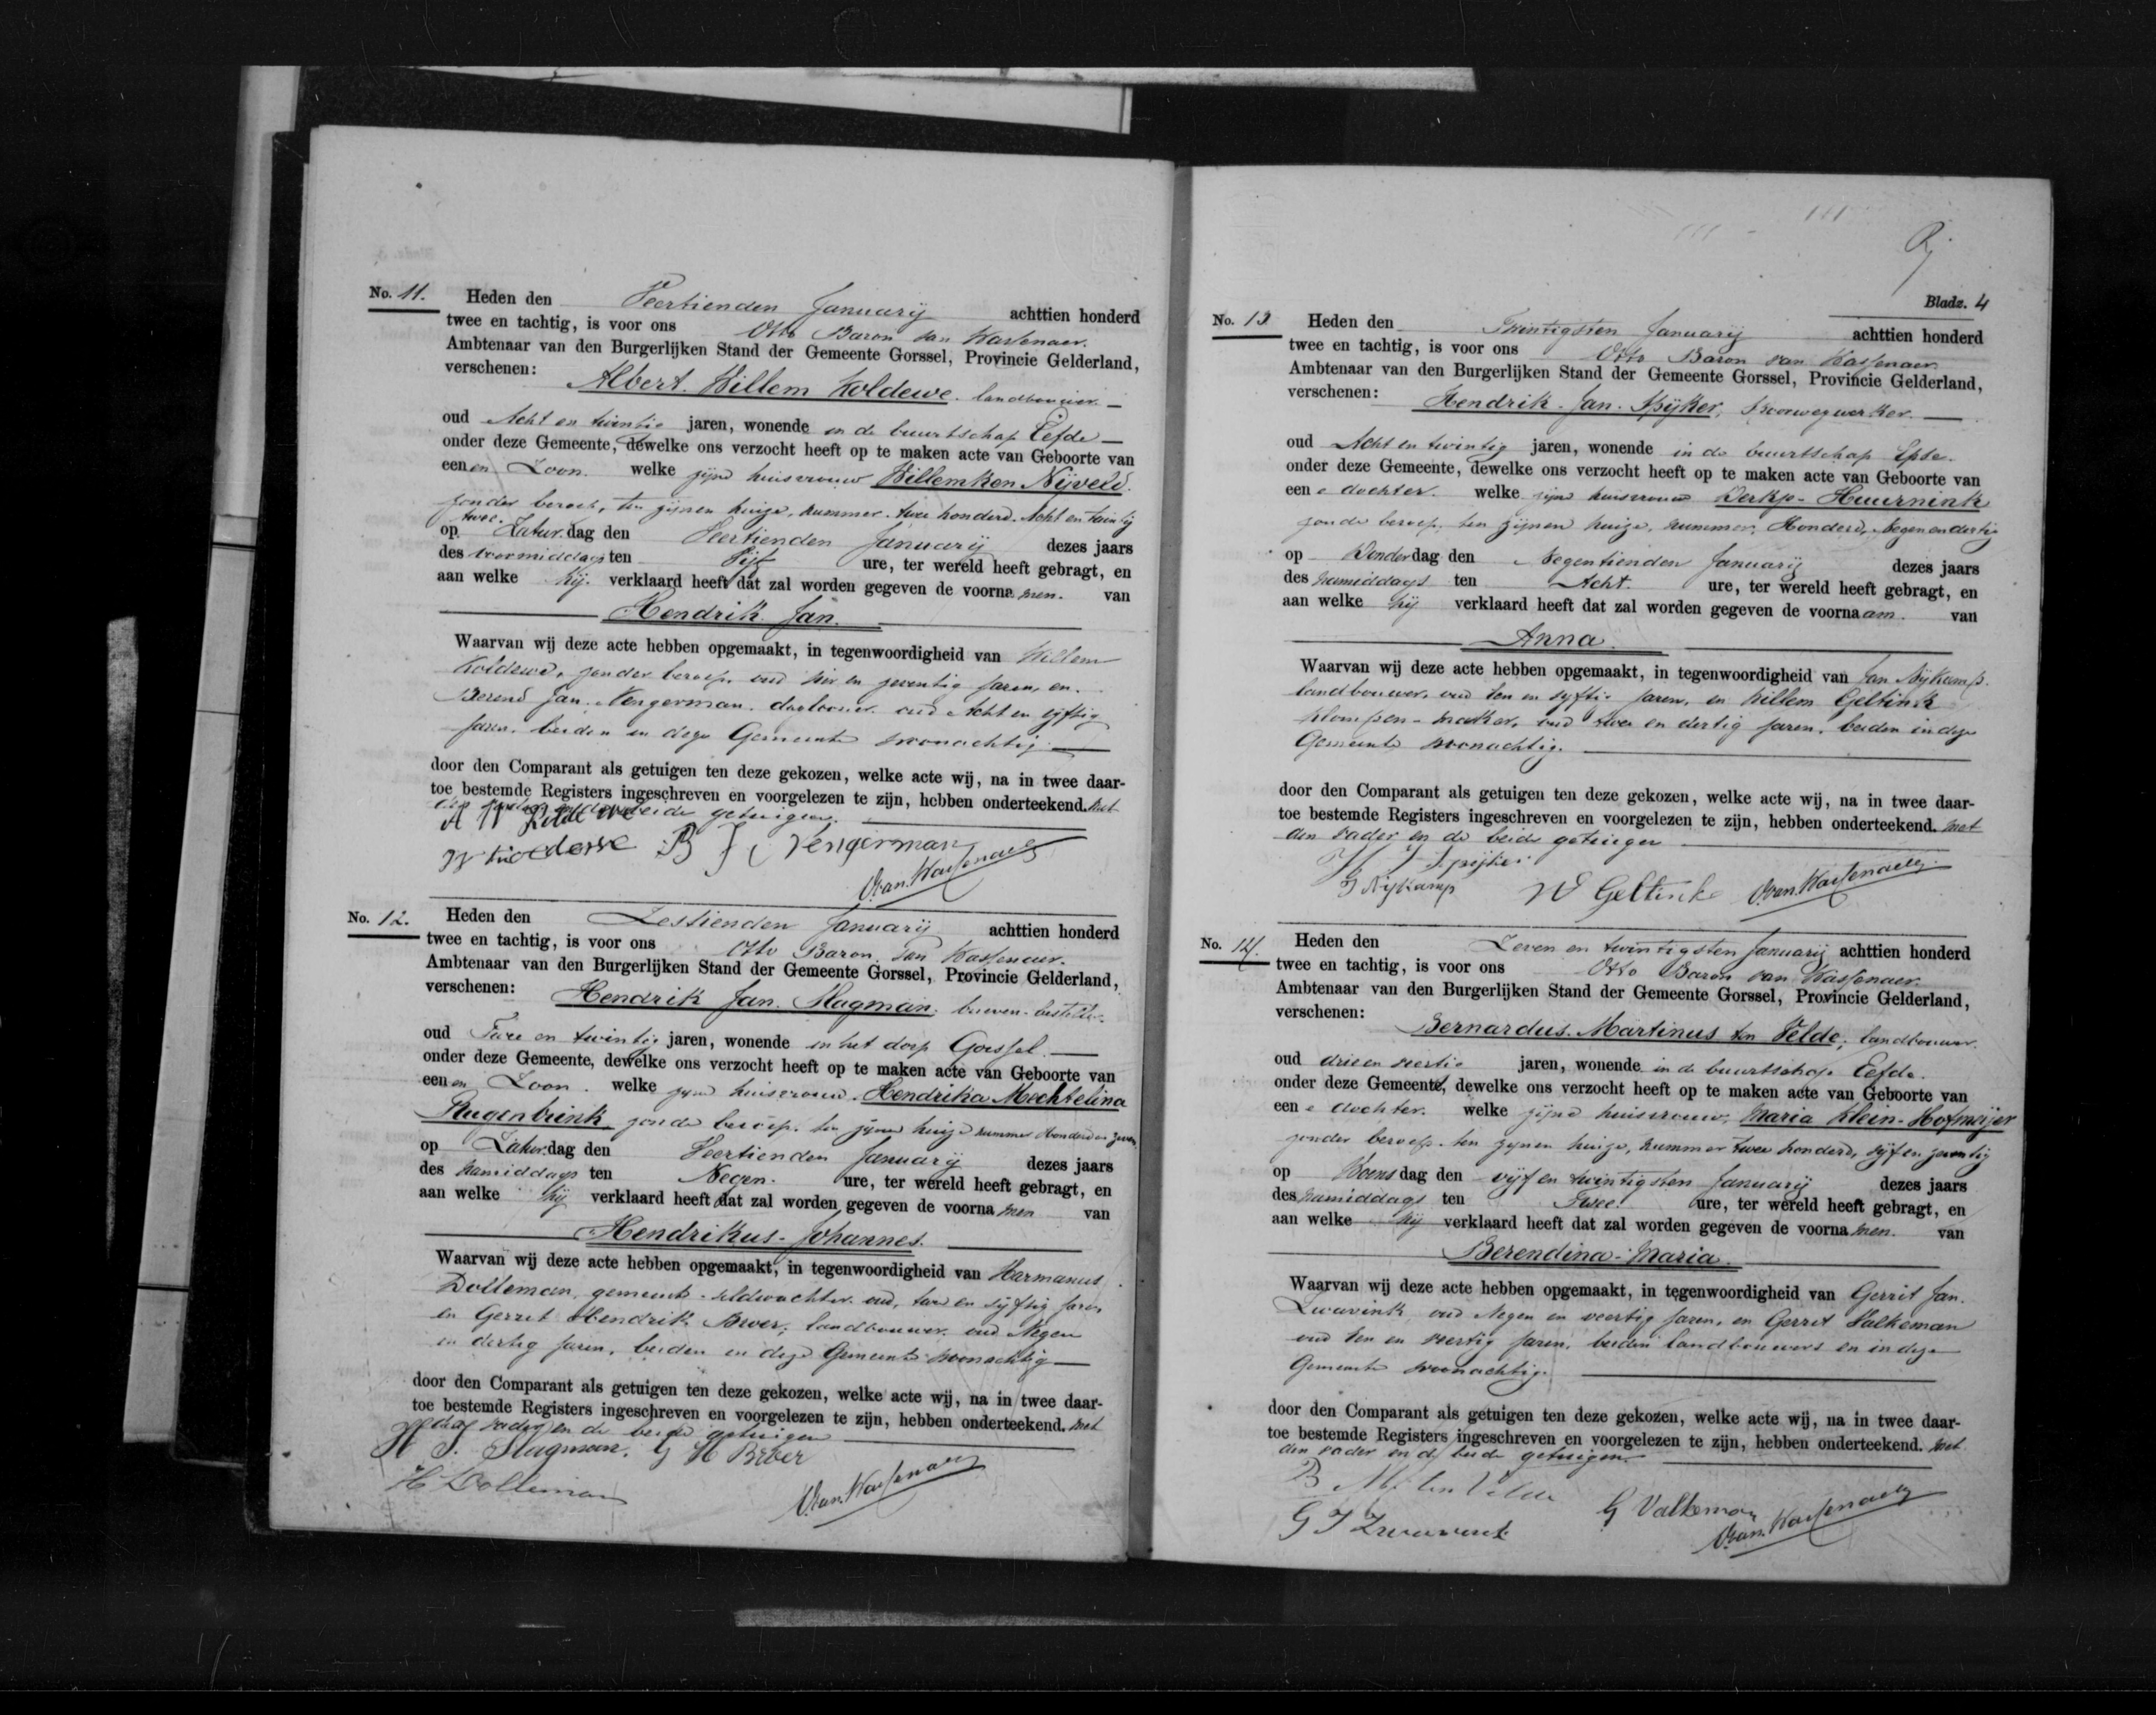 No. 11. Heden den Veertienden Januarij achttien honderd
twee en tachtig, is voor ons Otto Baron van Wassenaer.
Ambtenaar van den Burgerlijken Stand der Gemeente Gorssel, Provincie Gelderland,
verschenen: Albert Willem Koldewe. landbouwer.
oud Acht en twintig jaren, wonende in de buurtschap Eefde
onder deze Gemeente, dewelke ons verzocht heeft op te maken acte van Geboorte van
eenen Zoon. welke zijne huisvrouw Willemken Nijveld.
zonder beroep, ten zijnen huize, nummer twee honderd Acht en twintig
twee.
op Zaturdag den Veertienden Januarij dezes jaars
des voormiddags ten Vijf ure, ter wereld heeft gebragt, en
aan welke hij verklaard heeft dat zal worden gegeven de voornamen. van
Hendrik Jan.
Waarvan wij deze acte hebben opgemaakt, in tegenwoordigheid van Willem
Koldewe, zonder beroep, oud en zeventig jaren, en.
Berend Jan Nengerman. daglooner. oud Acht en vijftig
jaren. beiden in deze Gemeente woonachtig.
door den Comparant als getuigen ten deze gekozen, welke acte wij, na in twee daar-
toe bestemde Registers ingeschreven en voorgelezen te zijn, hebben onderteekend. met
beide getuigen.
A W Koldewe
B J Nengerman
O. van Wassenaer
No. 12. Heden den Zestienden Januarij achttien honderd
twee en tachtig, is voor ons Otto Baron van Wassenaer.
Ambtenaar van den Burgerlijken Stand der Gemeente Gorssel, Provincie Gelderland,
verschenen: Hendrik Jan Slagman, brieven-besteller.
oud Twee en twintig jaren, wonende in het dorp Gorssel.
onder deze Gemeente, dewelke ons verzocht heeft op te maken acte van Geboorte van
eenen Zoon. welke zijne huisvrouw. Hendrika Mechtelina
Rugenbrink zonder beroep. ten zijnen huize nummer Honderd en zeven
op Zaturdag den Veertienden Januarij dezes jaars
des namiddags ten Negen. ure, ter wereld heeft gebragt, en
aan welke hij verklaard heeft dat zal worden gegeven de voornamen van
Hendrikus-Johannes.
Waarvan wij deze acte hebben opgemaakt, in tegenwoordigheid van Harmanus
Dolleman, gemeente-veldwachter oud, twee en vijftig jaren
en Gerrit Hendrik Bruer, landbouwer oud Negen
en dertig jaren, beiden in deze Gemeente woonachtig
door den Comparant als getuigen ten deze gekozen, welke acte wij, na in twee daar-
toe bestemde Registers ingeschreven en voorgelezen te zijn, hebben onderteekend. met
vader en de beide getuigen
H J Slagman. G H Bruer
H Dolleman O. van Wassenaer
Bladz. 4
No. 13 Heden den Twintigsten Januarij achttien honderd
twee en tachtig, is voor ons Otto Baron van Wassenaer
Ambtenaar van den Burgerlijken Stand der Gemeente Gorssel, Provincie Gelderland,
verschenen: Hendrik Jan Spijker, spoorwegwerker.
oud Acht en twintig jaren, wonende in de buurtschap Epse.
onder deze Gemeente, dewelke ons verzocht heeft op te maken acte van Geboorte van
eene dochter. welke zijne huisvrouw Derkje Huurnink
zonder beroep, ten zijnen huize, nummer, Honderd, Negen en dertig
op Donderdag den Negentienden Januarij dezes jaars
des namiddags ten Acht. ure, ter wereld heeft gebragt, en
aan welke hij verklaard heeft dat zal worden gegeven de voornaam. van
Anna.
Waarvan wij deze acte hebben opgemaakt, in tegenwoordigheid van Jan Nijkamp
landbouwer, oud een en vijftig jaren, en Willem Geltink
klompen-maker, oud twee en dertig jaren. beiden in deze
Gemeente woonachtig.
door den Comparant als getuigen ten deze gekozen, welke acte wij, na in twee daar-
toe bestemde Registers ingeschreven en voorgelezen te zijn, hebben onderteekend. met
den vader en de beide getuigen
H J Spijker
J Nijkamp W Geltinck O. van Wassenaer
No. 14. Heden den Zeven en twintigsten Januarij achttien honderd
twee en tachtig, is voor ons Otto Baron van Wassenaer.
Ambtenaar van den Burgerlijken Stand der Gemeente Gorssel, Provincie Gelderland,
verschenen: Bernardus Martinus ten Velde, landbouwer.
oud drie en veertig jaren, wonende in de buurtschap Eefde.
onder deze Gemeente, dewelke ons verzocht heeft op te maken acte van Geboorte van
eene dochter. welke zijne huisvrouw, Maria Klein-Hofmeijer
zonder beroep ten zijnen huize, nummer twee honderd, vijf en zeventig
op Woensdag den vijf en twintigsten Januarij dezes jaars
des namiddags ten Twee ure, ter wereld heeft gebragt, en
aan welke hij verklaard heeft dat zal worden gegeven de voornamen. van
Berendina-Maria.
Waarvan wij deze acte hebben opgemaakt, in tegenwoordigheid van Gerrit Jan
Zwavink oud Negen en veertig jaren, en Gerrit Valkeman
oud een en veertig jaren, beiden landbouwers en in deze
Gemeente woonachtig.
door den Comparant als getuigen ten deze gekozen, welke acte wij, na in twee daar-
toe bestemde Registers ingeschreven en voorgelezen te zijn, hebben onderteekend. met
den vader en de beide getuigen.
B M ten Velde
G J Zwavink G Valkeman O. van Wassenaer